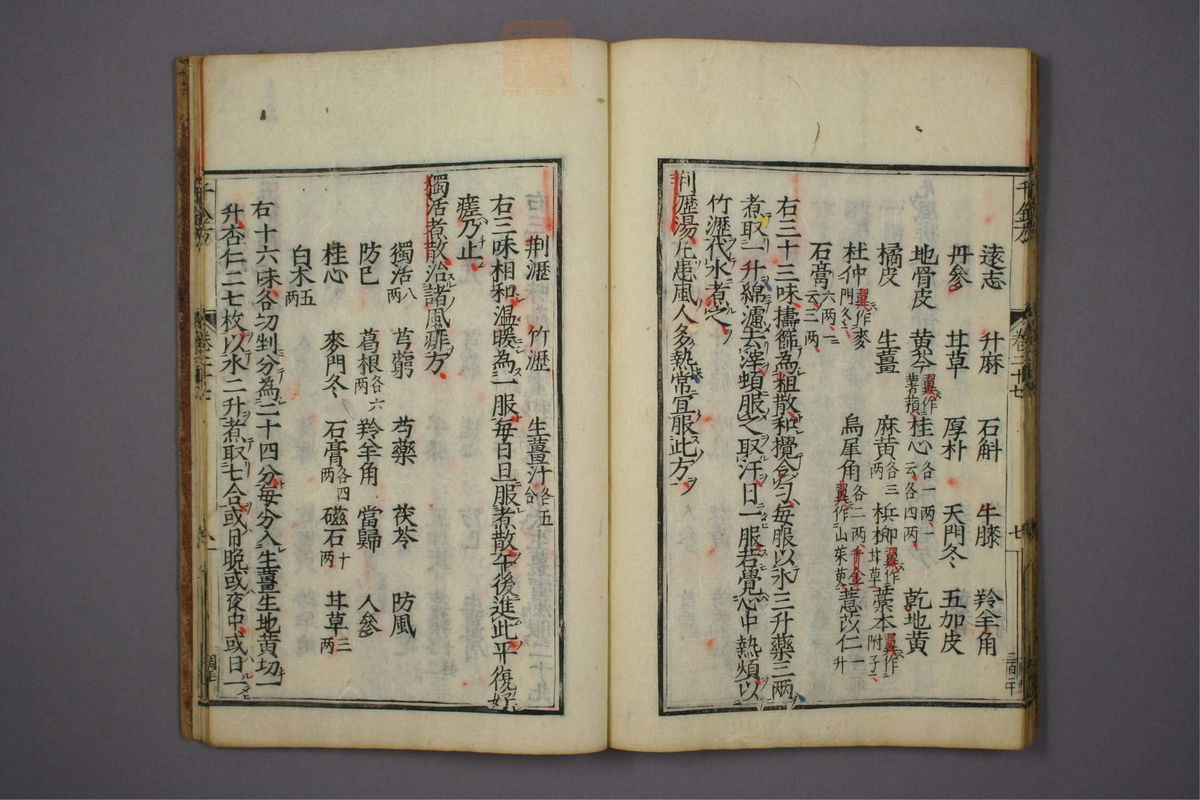 遠志　升麻　石斛　牛膝　羚羊角
丹參　甘草　厚朴　天門冬　五加皮
地骨皮　黄芩翼作藁蕷　桂心各一両一云各四両　乾地黄
橘皮　生薑　麻黄各三両　梹榔翼作甘草　藁本翼作附子
杜仲翼作麥門冬　烏犀角各二両翼作山茱萸　千金薏苡仁一升
石膏六両一云三両
右三十三味擣篩為粗散和攪合勻毎服以水三升藥三両
煮取一升綿濾去滓頓服之取汗日一服若覺心中熱煩以
竹瀝代水煮之
荆瀝湯凡患風人多熱常宜服此方
荆瀝　竹瀝　生薑汁各五合
右三味相和温暖為一服毎日旦服煮散午後進此平復好
瘥乃止
獨活煮散治諸風痱方
獨活八両　芎藭　芍藥　茯苓　防風
防已　葛根各六両　羚羊角　當歸　人參
桂心　麥門冬　石膏各四両　磁石十両　甘草三両
白木五両
右十六味各切剉分為二十四分毎分入生薑生地黄切一
升杏仁二七枚以水二升煮取七合或日晚或夜中或日一